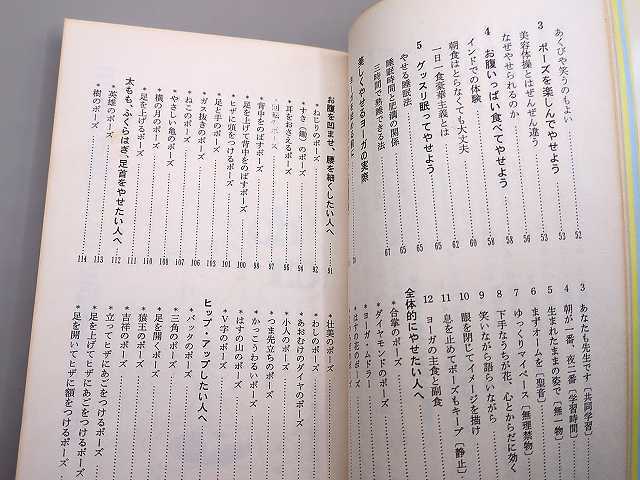 あくびや笑うのもよい 52
3 ポーズを楽しんでやせよう 53
美容体操とはぜんぜん違う 53
なぜやせられるのか 56
4 お腹いっぱい食べてやせよう 58
インドでの体験 58
朝食はとらなくても大丈夫 60
一日一食豪華主義とは 62
5 グッスリ眠ってやせよう 65
やせる睡眠法 65
睡眠時間と肥満の関係 65
三時間で熟睡できる法 67
楽しくやせるヨーガの実際
3 あなたも先生です〔共同学習〕
4 朝が一番、夜二番〔学習時間〕
5 生まれたままの姿で〔無一物〕
6 まずオームを〔聖音〕
7 ゆっくりマイペース〔無理禁物〕
8 下手なうちが花、心とからだに効く
9 笑いながら語らいながら
10 眼を閉じてイメージを描け
11 息を止めてポーズもキープ〔静止〕
12 ヨーガの主食と副食
全体的にやせたい人へ
*合掌のポーズ
*ダイヤモンドのポーズ
*ヨーガ・ムドラー
*はすの花のポーズ
お腹を凹ませ、腰を細くしたい人へ 91
*ねじりのポーズ 92
*すき(鋤)のポーズ 94
*耳をおさえるポーズ 96
*回転のポーズ 97
*背中をのばすポーズ 98
*足を上げて背中をのばすポーズ 100
*ヒザに頭をつけるポーズ 101
*足と手のポーズ 103
*ガス抜きのポーズ 105
*ねこのポーズ 106
*やさしい亀のポーズ 107
*横の月のポーズ 108
*足を上げるポーズ 110
太もも、ふくらはぎ、足首をやせたい人へ 111
*英雄のポーズ 112
*樹のポーズ 114
*壮美のポーズ
*わしのポーズ
*あおむけのダイヤのポーズ
*小人のポーズ
*つま先立ちのポーズ
*かっこうわるいポーズ
*はすの山のポーズ
*V字のポーズ
ヒップ・アップしたい人へ
*バッタのポーズ
*三角のポーズ
*足を開くポーズ
*猿王のポーズ
*吉祥のポーズ
*立ってヒザにあごをつけるポーズ
*足を上げてヒザにあごをつけるポーズ
*足を開いてヒザに額をつけるポーズ